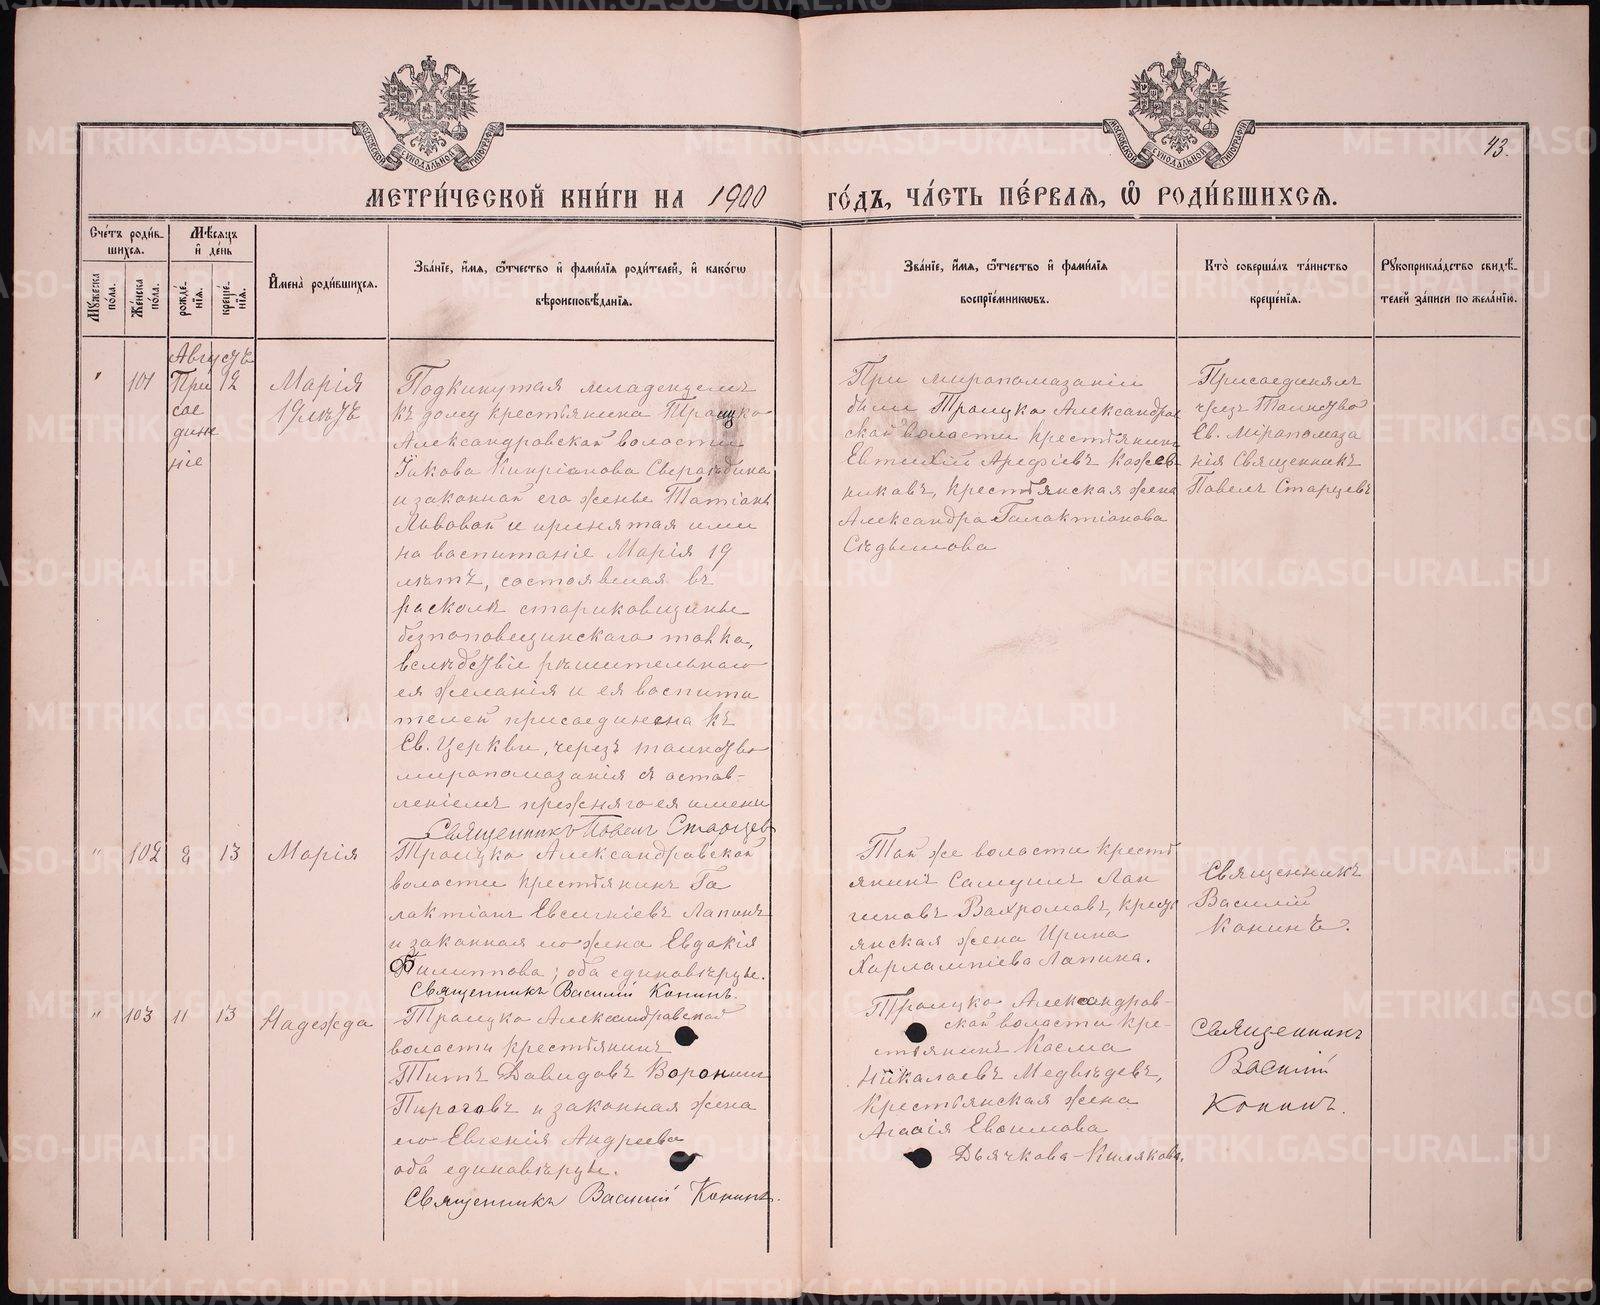 43.
МЕТРИ́ЧЕСКОЙ КНИ́ГИ НА 1900 ГО́ДЪ, ЧА́СТЬ ПЕ́РВАЯ, Ѽ РОДИ́ВШИХСЯ.
Сче́тъ роди́в-
шихся.
Мѣ́сяцъ
и҆ де́нь
Му́жеска
по́ла.
Же́нска
по́ла.
рожде́-
нїя.
креще́-
нїя.
И҆мена̀ роди́вшихся.
Зва́нїе, и҆́мя, ѻ҆́тчество и҆ фами́лїя роди́телей, и҆ како́гѡ
вѣроисповѣ́данїя.
Зва́нїе, и҆́мя, ѻ҆́тчество и҆ фами́лїя
воспрїе́мникѡвъ.
Кто̀ соверша́лъ та́инство
креще́нїя.
Рукоприкла́дство свидѣ́-
телей за́писи по жела́нїю.
Августъ
101
При
сое
дине
ніе
12
Марія
19 лѣтъ
Подкинутая младенцемъ
къ дому крестьянина Троицко
Александровской волости
Іакова Кипріанова
и законной его женѣ Татіанѣ
Львовой и принятая ими
на воспитаніе Марія 19
лѣтъ, состоявшая въ
расколѣ стариковщины
безпоповщинскаго толка,
вслѣдствіе рѣшительнаго
ея желанія и ея воспита
телей присоединена къ
Св. Церкви, чрезъ таинство
миропомазанія съ остав-
леніемъ прежняго ея имени
Священникъ Павелъ Старцев
При миропомазаніи
были Троицко Александров
ской волости крестьянинъ
Евтихій Арефіевъ Кожев
никовъ, крестьянская жена
Александра Галактіонова
Сѣдышова
Присоединялъ
чрезъ Таинство
Св. Міропомаза
нія Священникъ
Павелъ Старцевъ
" 102 8 13 Марія
Троицко Александровской
волости крестьянинъ Га
лактіонъ Евсигніевъ Лапинъ
и законная его жена Евдокія
Филиппова; оба единовѣрцы.
Священникъ Василій Конинъ.
Той же волости крестъ
янинъ Самуилъ Лон
гиновъ Вахромовъ, крест
янская жена Ирина
Харлампіева Лапина.
Священникъ
Василій
Конинъ.
" 103 11 13 Надежда
Троицко Александровской
волости крестьянинъ
Титъ Давидовъ Воронинъ
Пироговъ и законная жена
его Евгенія Андреева
оба единовѣрцы.
Священникъ Василій Конинъ.
Троицко Александров-
ской волости кре-
стьянинъ Косма
Николаевъ Медвѣдевъ,
крестьянская жена
Агаѳія Евѳимова
Дьячкова-Килякова.
Священникъ
Василій
Конинъ.
METRIKI.GASO-URAL.RU